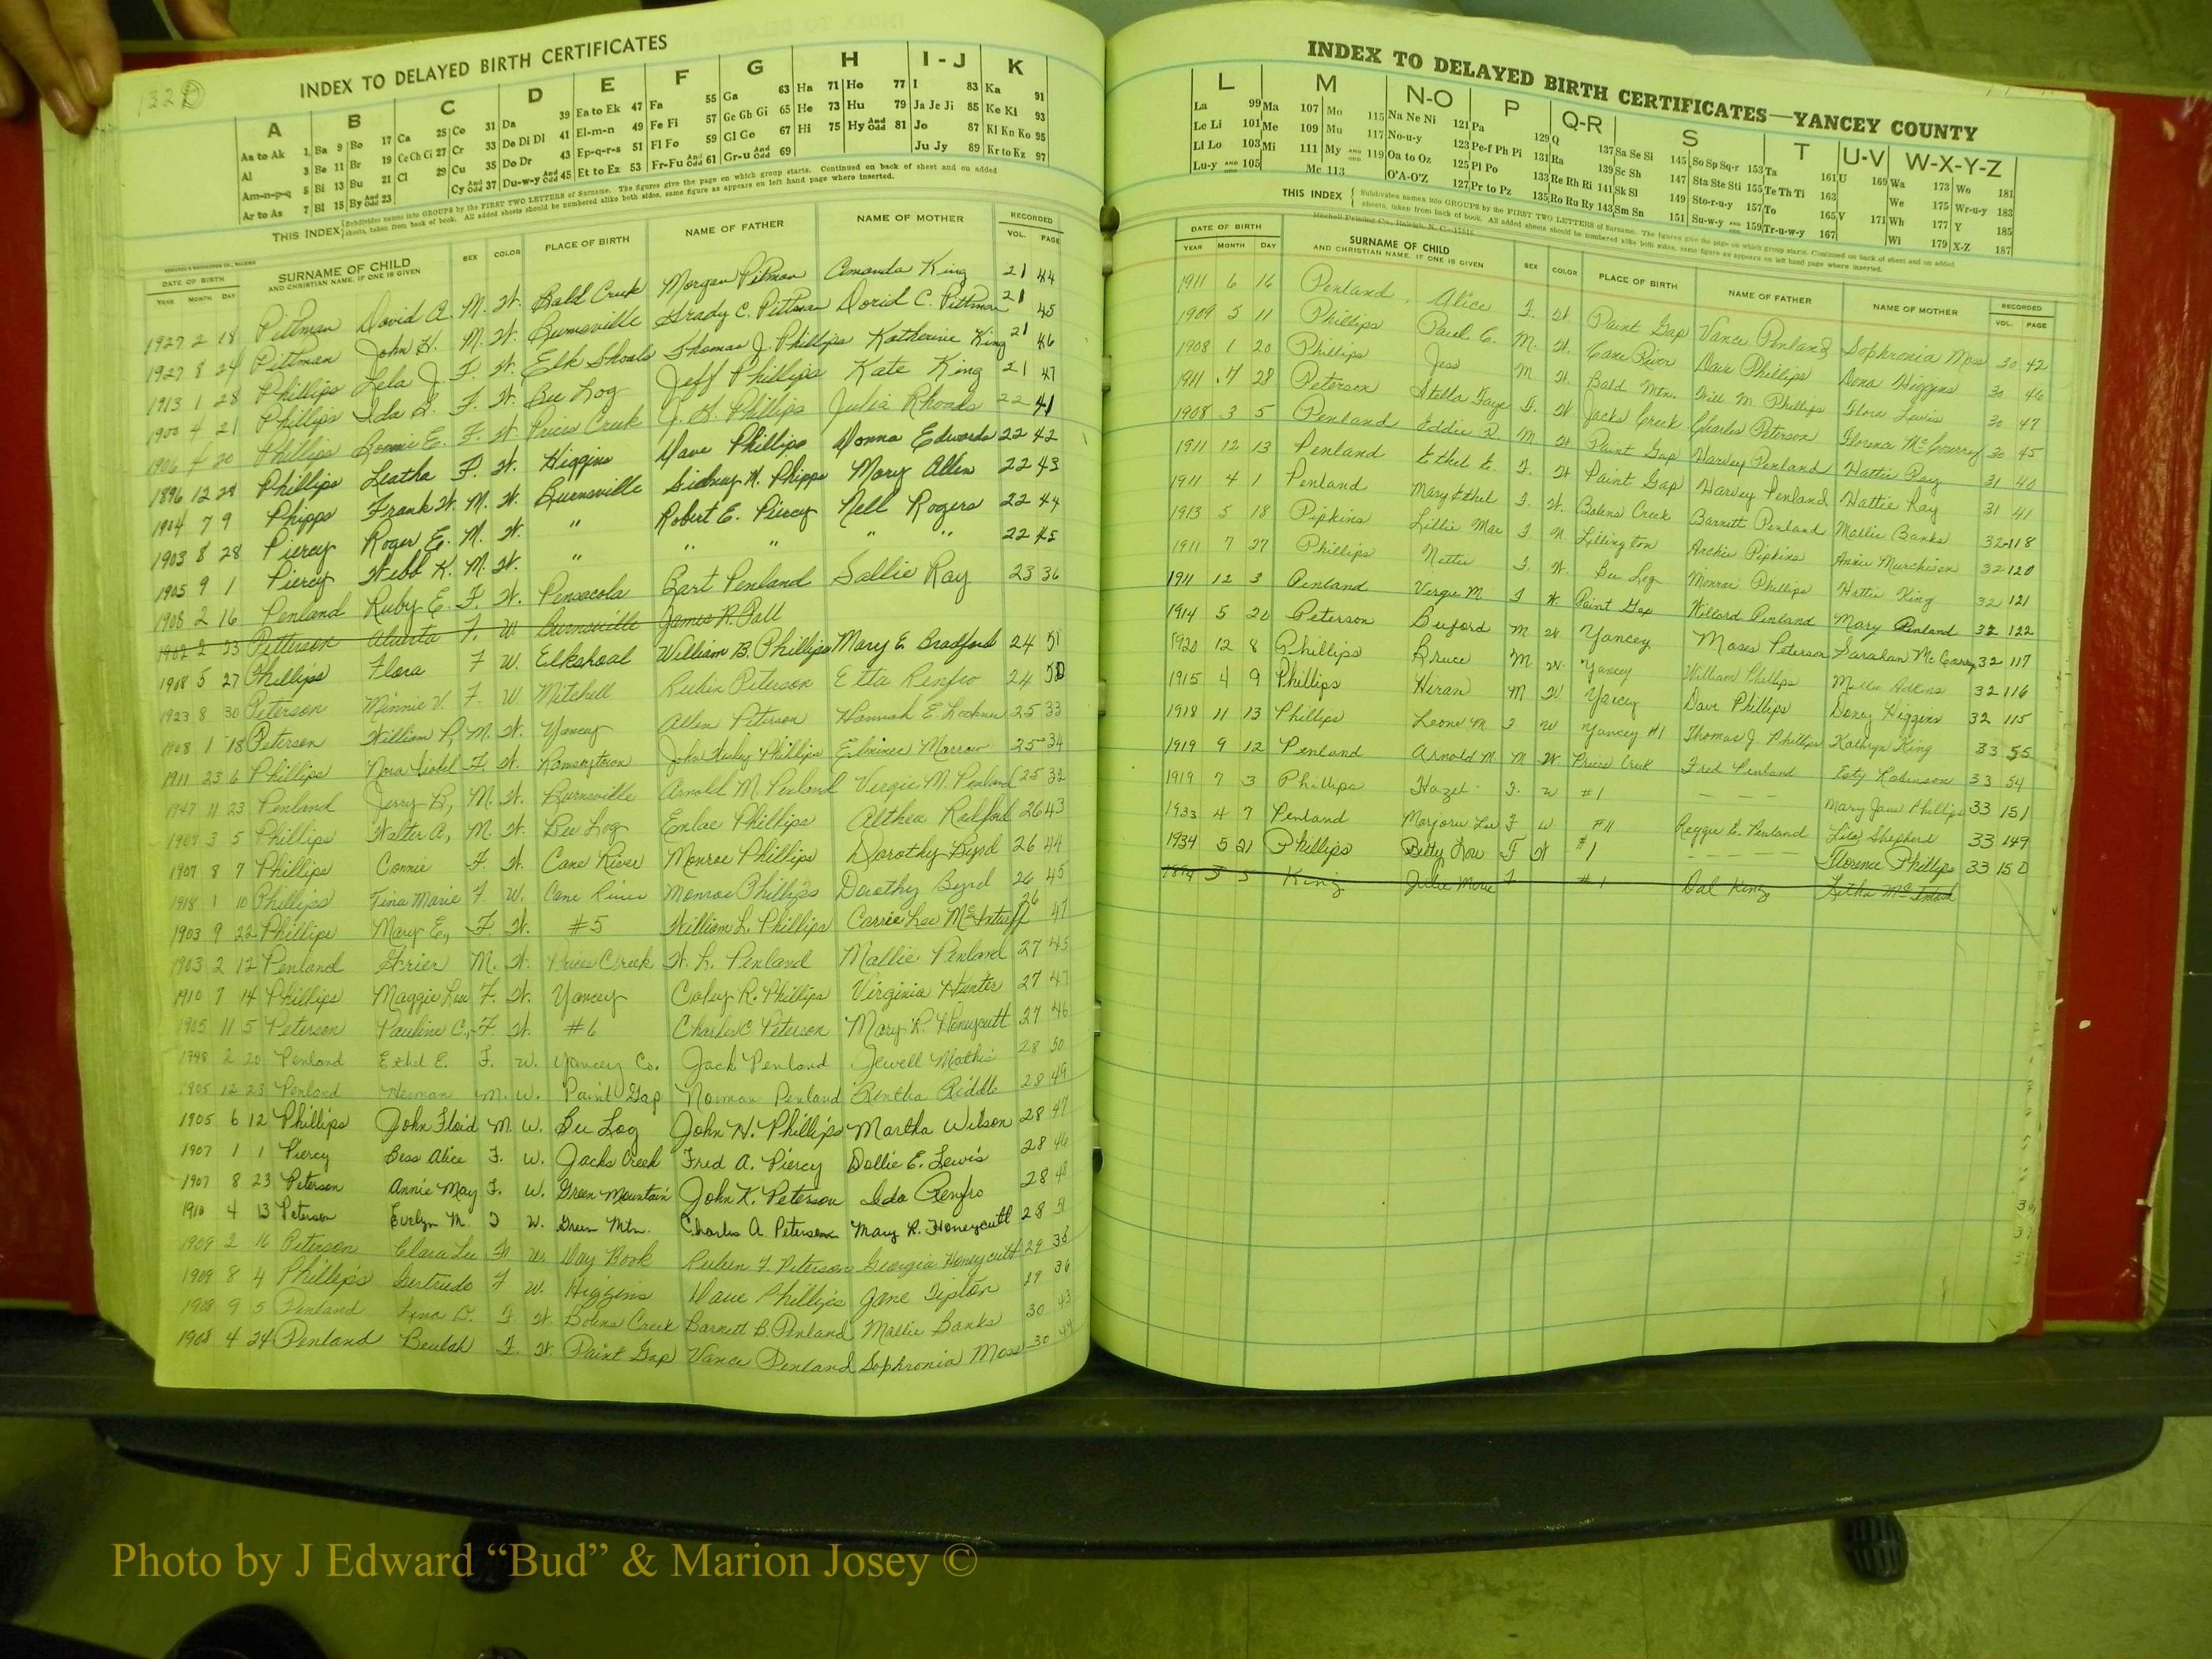 INDEX TO DELAYED BIRTH CERTIFICATES
A B C D E F G H I - J K
As to Ak 1 Ba 9 Bo 17 Ca 25 Co 31 Da 39 Ea to Ek 47 Fa 55 Ga 63 Ha 71 Ho 77 I 83 Ka 91
Al 3 Be 11 Br 19 Ce Ch Ci 27 Cr 33 De Di Dl 41 El-m-n 49 Fe Fi 57 Ge Gh Gi 65 He 73 Hu 79 Ja Je Ji 85 Ke Ki 93
Am-n-p-q 5 Bi 13 Bu 21 Cl 29 Cu 35 Do Dr 43 Ep-q-r-s 51 Fl Fo 59 Gl Go 67 Hi 75 Hy And Odd 81 Jo 87 Kl Kn Ko 95
Ar to As 7 Bl 15 By And Odd 23 Cy And Odd 37 Du-w-y And Odd 45 Et to Ez 53 Fr-Fu And Odd 61 Gr-u And Odd 69 Ju Jy 89 Kr to Kz 97
THIS INDEX Subdivides names into GROUPS by the FIRST TWO LETTERS of Surname. The figures give the page on which group starts. Continued on back of sheet and on added
sheets, taken from back of book. All added sheets should be numbered alike both sides, same figure as appears on left hand page where inserted.
DATE OF BIRTH SURNAME OF CHILD SEX COLOR PLACE OF BIRTH NAME OF FATHER NAME OF MOTHER RECORDED
YEAR MONTH DAY AND CHRISTIAN NAME, IF ONE IS GIVEN VOL. PAGE
1927 2 18 Pittman David A. M. W. Bald Creek Morgan Pitman Amanda King 21 44
1927 8 24 Pittman John H. M. W. Burnsville Grady C. Pittman Dorid C. Pittman 21 45
1913 1 28 Phillips Lela J. F. W. Elk Shoals Thomas J. Phillips Katherine King 21 46
1900 4 21 Phillips Ida L. F. W. Bee Log Jeff Phillips Kate King 21 47
1906 4 20 Phillips Bonnie E. F. W. Prices Creek J. H. Phillips Julia Rhoads 22 41
1896 12 29 Phillips Leatha F. W. Higgins Dave Phillips Donna Edwards 22 42
1904 7 9 Phipps Frank W. M. W. Burnsville Sidney N. Phipps Mary Allen 22 43
1903 8 28 Piercy Roger E. M. W. " Robert E. Piercy Nell Rogers 22 44
1905 9 1 Piercy Webb K. M. W. " " " " " 22 45
1908 2 16 Penland Ruby E. F. W. Pensacola Bart Penland Sallie Ray 23 36
1902 2 23 Petterson Alverta F. W Burnsville James R.
1908 5 27 Phillips Flora F W. Elkshoal William B. Phillips Mary E Bradford 24 51
1923 8 30 Peterson Minnie V. F. W Mitchell Rubin Peterson Etta Renfro 24 50
1908 1 18 Peterson William P, M. W. Yancey Allen Peterson Hannah E 25 33
1911 23 6 Phillips Nora F. W. Ramseytown John Phillips 25 34
1947 11 23 Penland Jerry R, M. W. Burnsville Arnold M. Penland Vergie M. Penland 25 32
1909 3 5 Phillips Walter A, M. W. Bee Log Phillips Althea Radford 26 43
1907 8 7 Phillips Connie F. W. Cane River Monroe Phillips Dorothy Byrd 26 44
1918 1 10 Phillips Tina Marie F. W. Cane River Monroe Phillips Dorothy Byrd 26 45
1903 9 22 Phillips Mary E, F. W. #5 William L. Phillips Carrie Lee McInturff 26 47
1903 2 12 Penland Grier M. W. Prices Creek W. L. Penland Mallie Penland 27 45
1910 7 14 Phillips Maggie Lee F. W. Yancey Coley R. Phillips Virginia Hunter 27 47
1905 11 5 Peterson Pauline C, F. W. #6 Charles C Peterson Mary R. Honeycutt 27 46
1948 2 20 Penland Ethel E. F. W. Yancey Co. Jack Penland Jewell Mathis 28 50
1905 12 23 Penland Herman M. W. Paint Gap Norman Penland Rintha Riddle 28 49
1905 6 12 Phillips John Floid M. W. Bee Log John H. Phillips Martha Wilson 28 47
1907 1 1 Piercy Bess Alice F. W. Jacks Creek Fred A. Piercy Dollie E. Lewis 28 46
1907 8 23 Peterson Annie May F. W. Green Mountain John K. Peterson Ida Renfro 28 48
1910 4 13 Peterson Evelyn M. F W. Green Mtn. Charles A. Peterson Mary R. Honeycutt 28 51
1909 2 16 Peterson Clara Lee F W. Day Book Ruben F. Peterson Georgia Honeycutt 29 38
1909 8 4 Phillips Gertrude F W. Higgins Dave Phillips Jane Tipton 29 36
1908 9 5 Penland Lena B. F W Bolens Creek Barnett B. Penland Mallie Banks 30 43
1908 4 24 Penland Beulah F. W. Paint Gap Vance Penland Sophronia Moss 30 44
INDEX TO DELAYED BIRTH CERTIFICATES—YANCEY COUNTY
L M N-O P Q-R S T U-V W-X-Y-Z
La 99 Ma 107 Mo 115 Na Ne Ni 121 Pa 129 Q 137 Sa Se Si 145 So Sp Sq-r 153 Ta 161 U 169 Wa 173 Wo 181
Le Li 101 Me 109 Mu 117 No-u-y 123 Pe-f Ph Pi 131 Ra 139 Sc Sh 147 Sta Ste Sti 155 Te Th Ti 163 We 175 Wr-u-y 183
Ll Lo 103 Mi 111 My AND ODD 119 Oa to Oz 125 Pl Po 133 Re Rh Ri 141 Sk Sl 149 Sto-r-u-y 157 To 165 V 171 Wh 177 Y 185
Lu-y AND ODD 105 Mc 113 O'A-O'Z 127 Pr to Pz 135 Ro Ru Ry 143 Sm Sn 151 Su-w-y AND ODD 159 Tr-u-w-y 167 Wi 179 X-Z 187
THIS INDEX Subdivides names into GROUPS by the FIRST TWO LETTERS of Surname. The figures give the page on which group starts. Continued on back of sheet and on added
sheets, taken from back of book. All added sheets should be numbered alike both sides, same figure as appears on left hand page where inserted.
DATE OF BIRTH SURNAME OF CHILD SEX COLOR PLACE OF BIRTH NAME OF FATHER NAME OF MOTHER RECORDED
YEAR MONTH DAY AND CHRISTIAN NAME, IF ONE IS GIVEN VOL. PAGE
1911 6 16 Penland, Alice F. W. Paint Gap Vance Penland Sophronia Moss 30 42
1909 5 11 Phillips Paul C. M. W. Cane River Dave Phillips Dona Higgins 30 46
1908 1 20 Phillips Jess M W. Bald Mtn. Will M. Phillips Flora Lewis 30 47
1911 7 28 Peterson Stella Faye F. W Jacks Creek Charles Peterson Florence McCourry 30 45
1908 3 5 Penland Eddie R. M W Paint Gap Harvey Penland Hattie Ray 31 40
1911 12 13 Penland Ethel E. F. W Paint Gap Harvey Penland Hattie Ray 31 41
1911 4 1 Penland Mary Ethel F. W. Bolens Creek Barnett Penland Mallie Banks 32-118
1913 5 18 Pipkins Lillie Mae F. N. Lillington Archie Pipkins Annie Murchison 32 120
1911 7 27 Phillips Nettie F. W. Bee Log Monroe Phillips Hattie King 32 121
1911 12 3 Penland Vergie M F W. Paint Gap Willard Penland Mary Penland 32 122
1914 5 20 Peterson Buford M W Yancey Moses Peterson Sarahan McCarry 32 117
1920 12 8 Phillips Bruce M. W. Yancey William Phillips Mollie Adkins 32 116
1915 4 9 Phillips Hiran M W Yancey Dave Phillips Doney Higgins 32 115
1918 11 13 Phillips Leone M. F W Yancey #1 Thomas J. Phillips Kathryn King 33 55
1919 9 12 Penland Arnold M. M W Prices Creek Fred Penland Esty Robinson 33 54
1919 7 3 Phillips Hazel F. W #1 — — — Mary Jane Phillips 33 151
1933 4 7 Penland Marjorie Lee F W #11 Reggie E. Penland Lila Shepherd 33 149
1934 5 21 Phillips Betty Lou F W #1 — — — Florence Phillips 33 150
5 King Julie Marie F #1 Dal King
Photo by J Edward “Bud” & Marion Josey ©